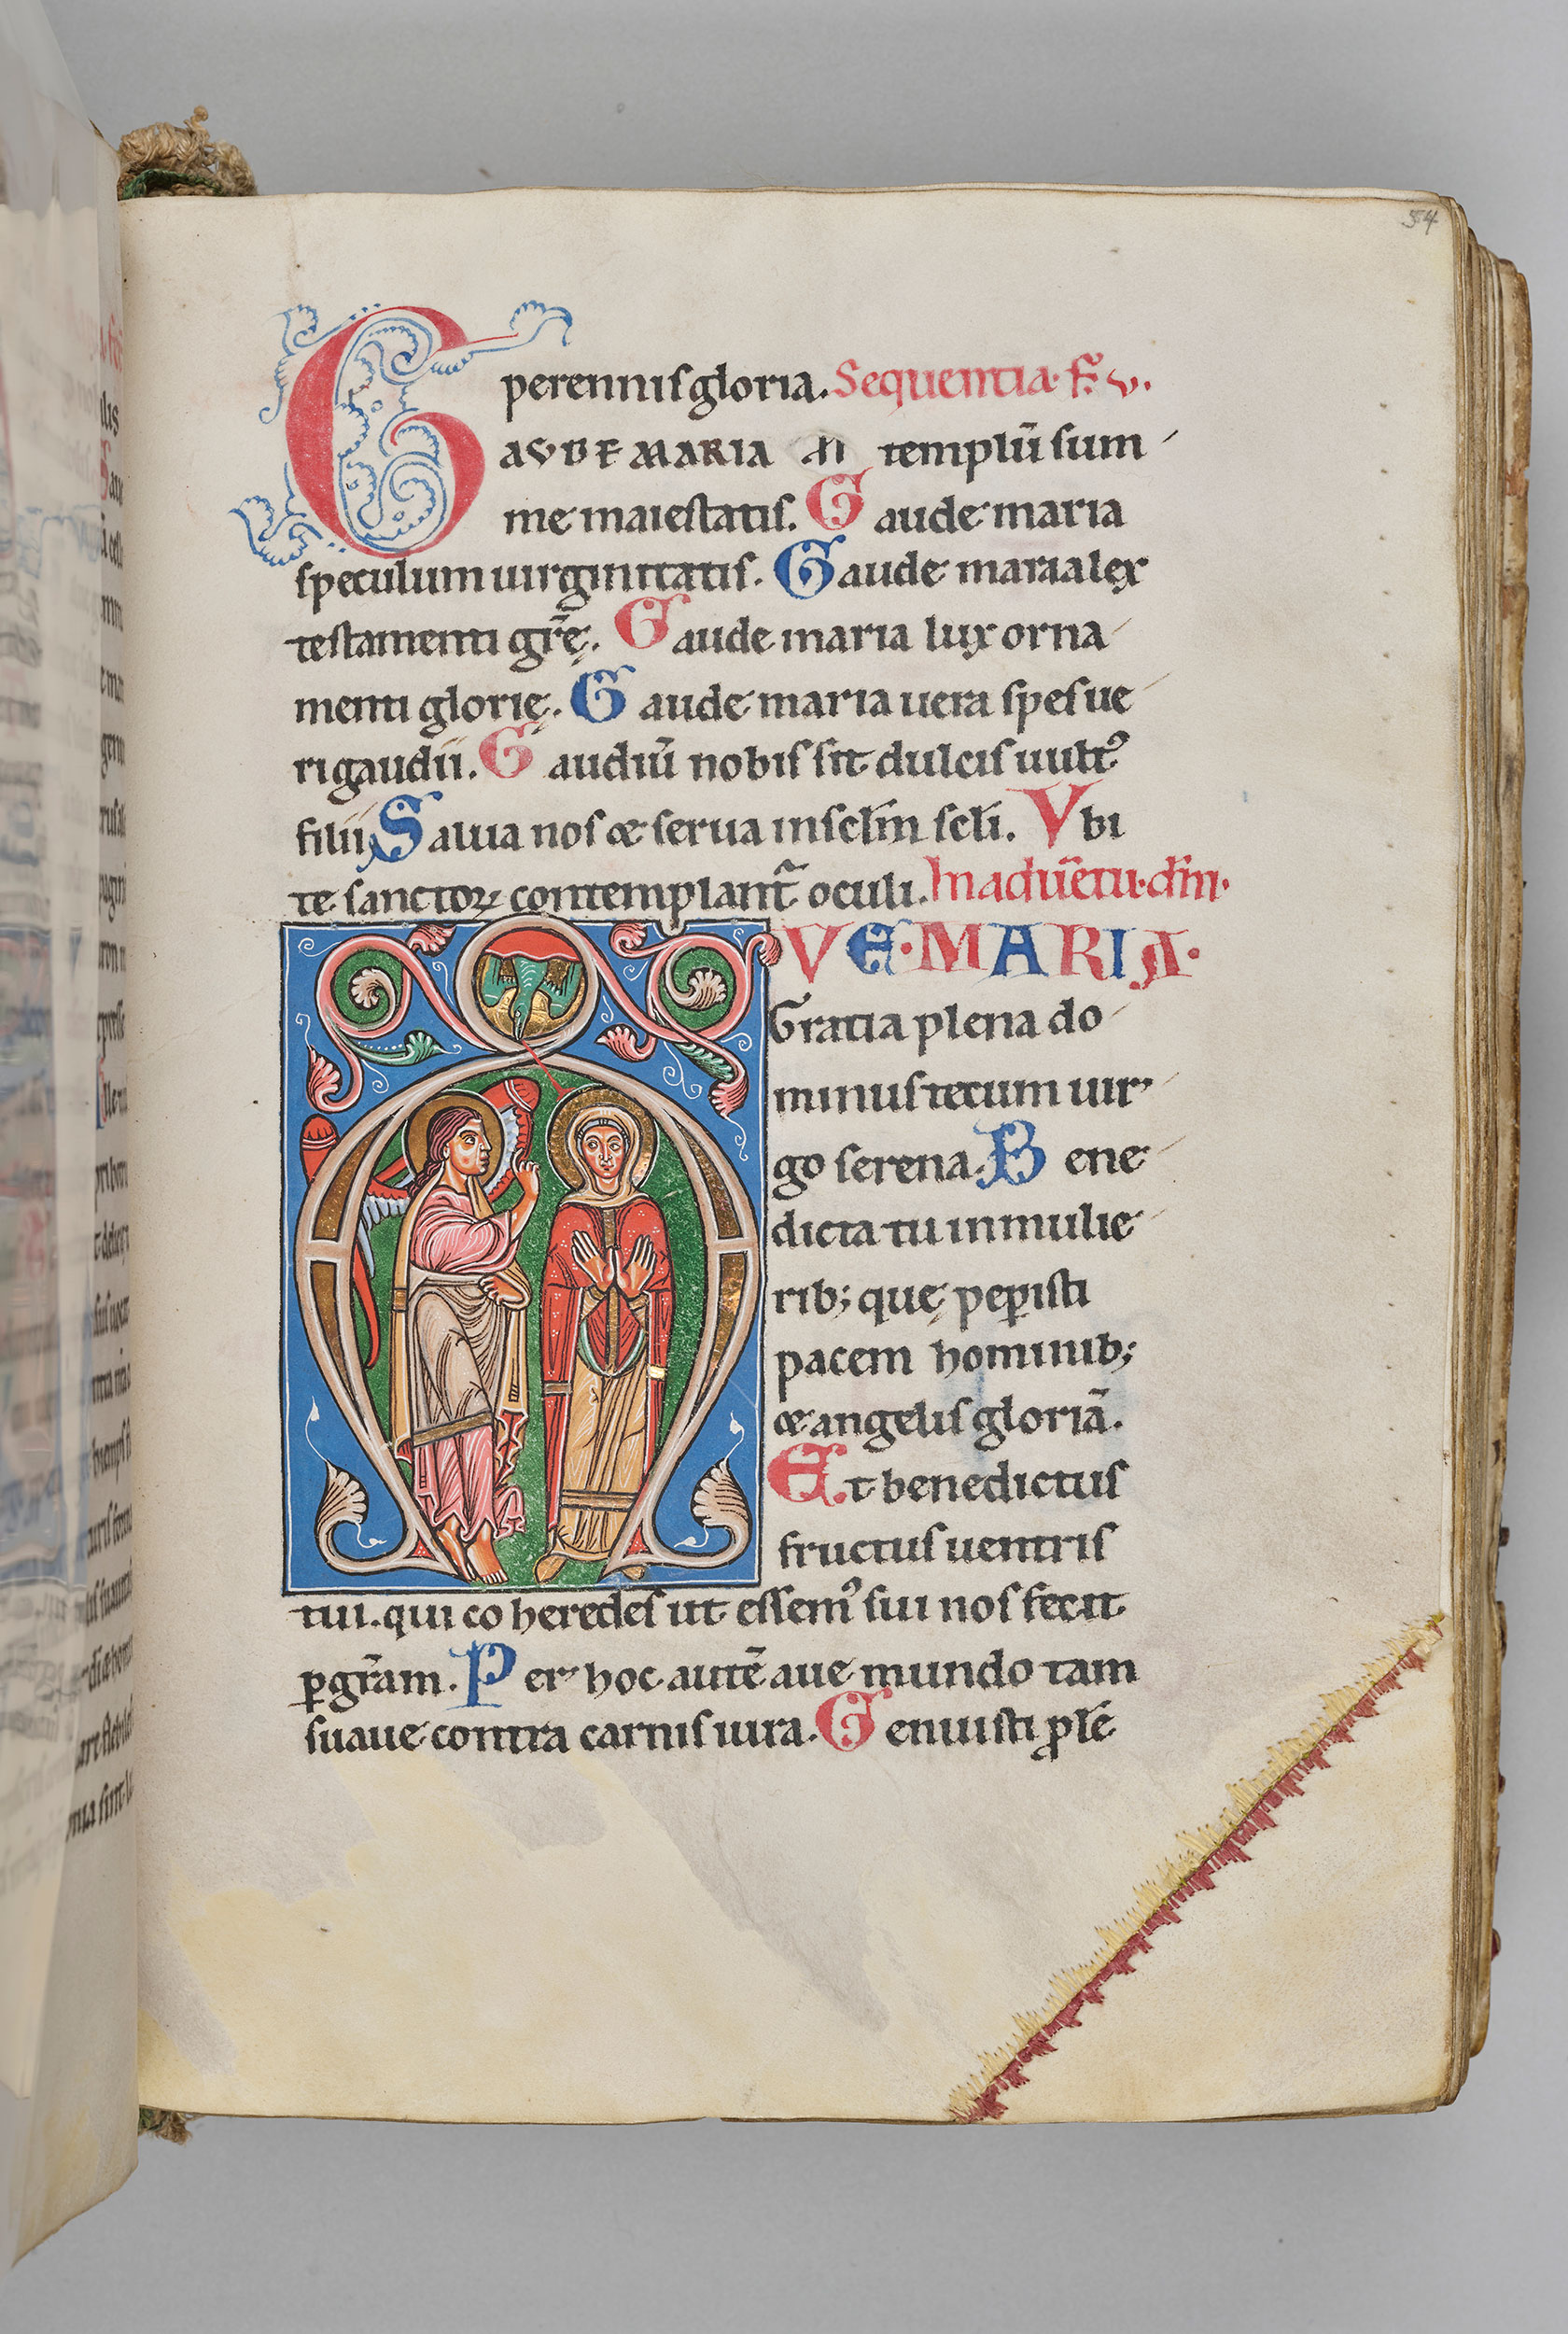 54
perennis gloria. Sequentia. fr̄. v.
GAUDE MARIA templū sum
me maiestatis. Gaude maria
speculum uirginitatis. Gaude maria alex
testamenti gr̄ę. Gaude maria lux orna
menti glorię. Gaude maria uera spes ue
ri gaudii. Gaudiū nobis sit dulcis uultꝰ
filii, Salua nos & serua in sclm̄ scli̅. Vbi
te sanctoꝝ contemplant̄ oculi. In aduētu. dn̄i.
AVE. MARIA.
Gratia plena do
minus tecum uir
go serena. Bene
dicta tu in mulie
rib; quę peꝑisti
pacem hominib;
& angelis gloriā.
Et benedictus
fructus uentris
tui. qui coheredes ut essemꝰ sui nos fecit
ꝑ gr̄am. Per hoc autē aue mundo tam
suaue contra carnis iura. Genuisti ꝓlē